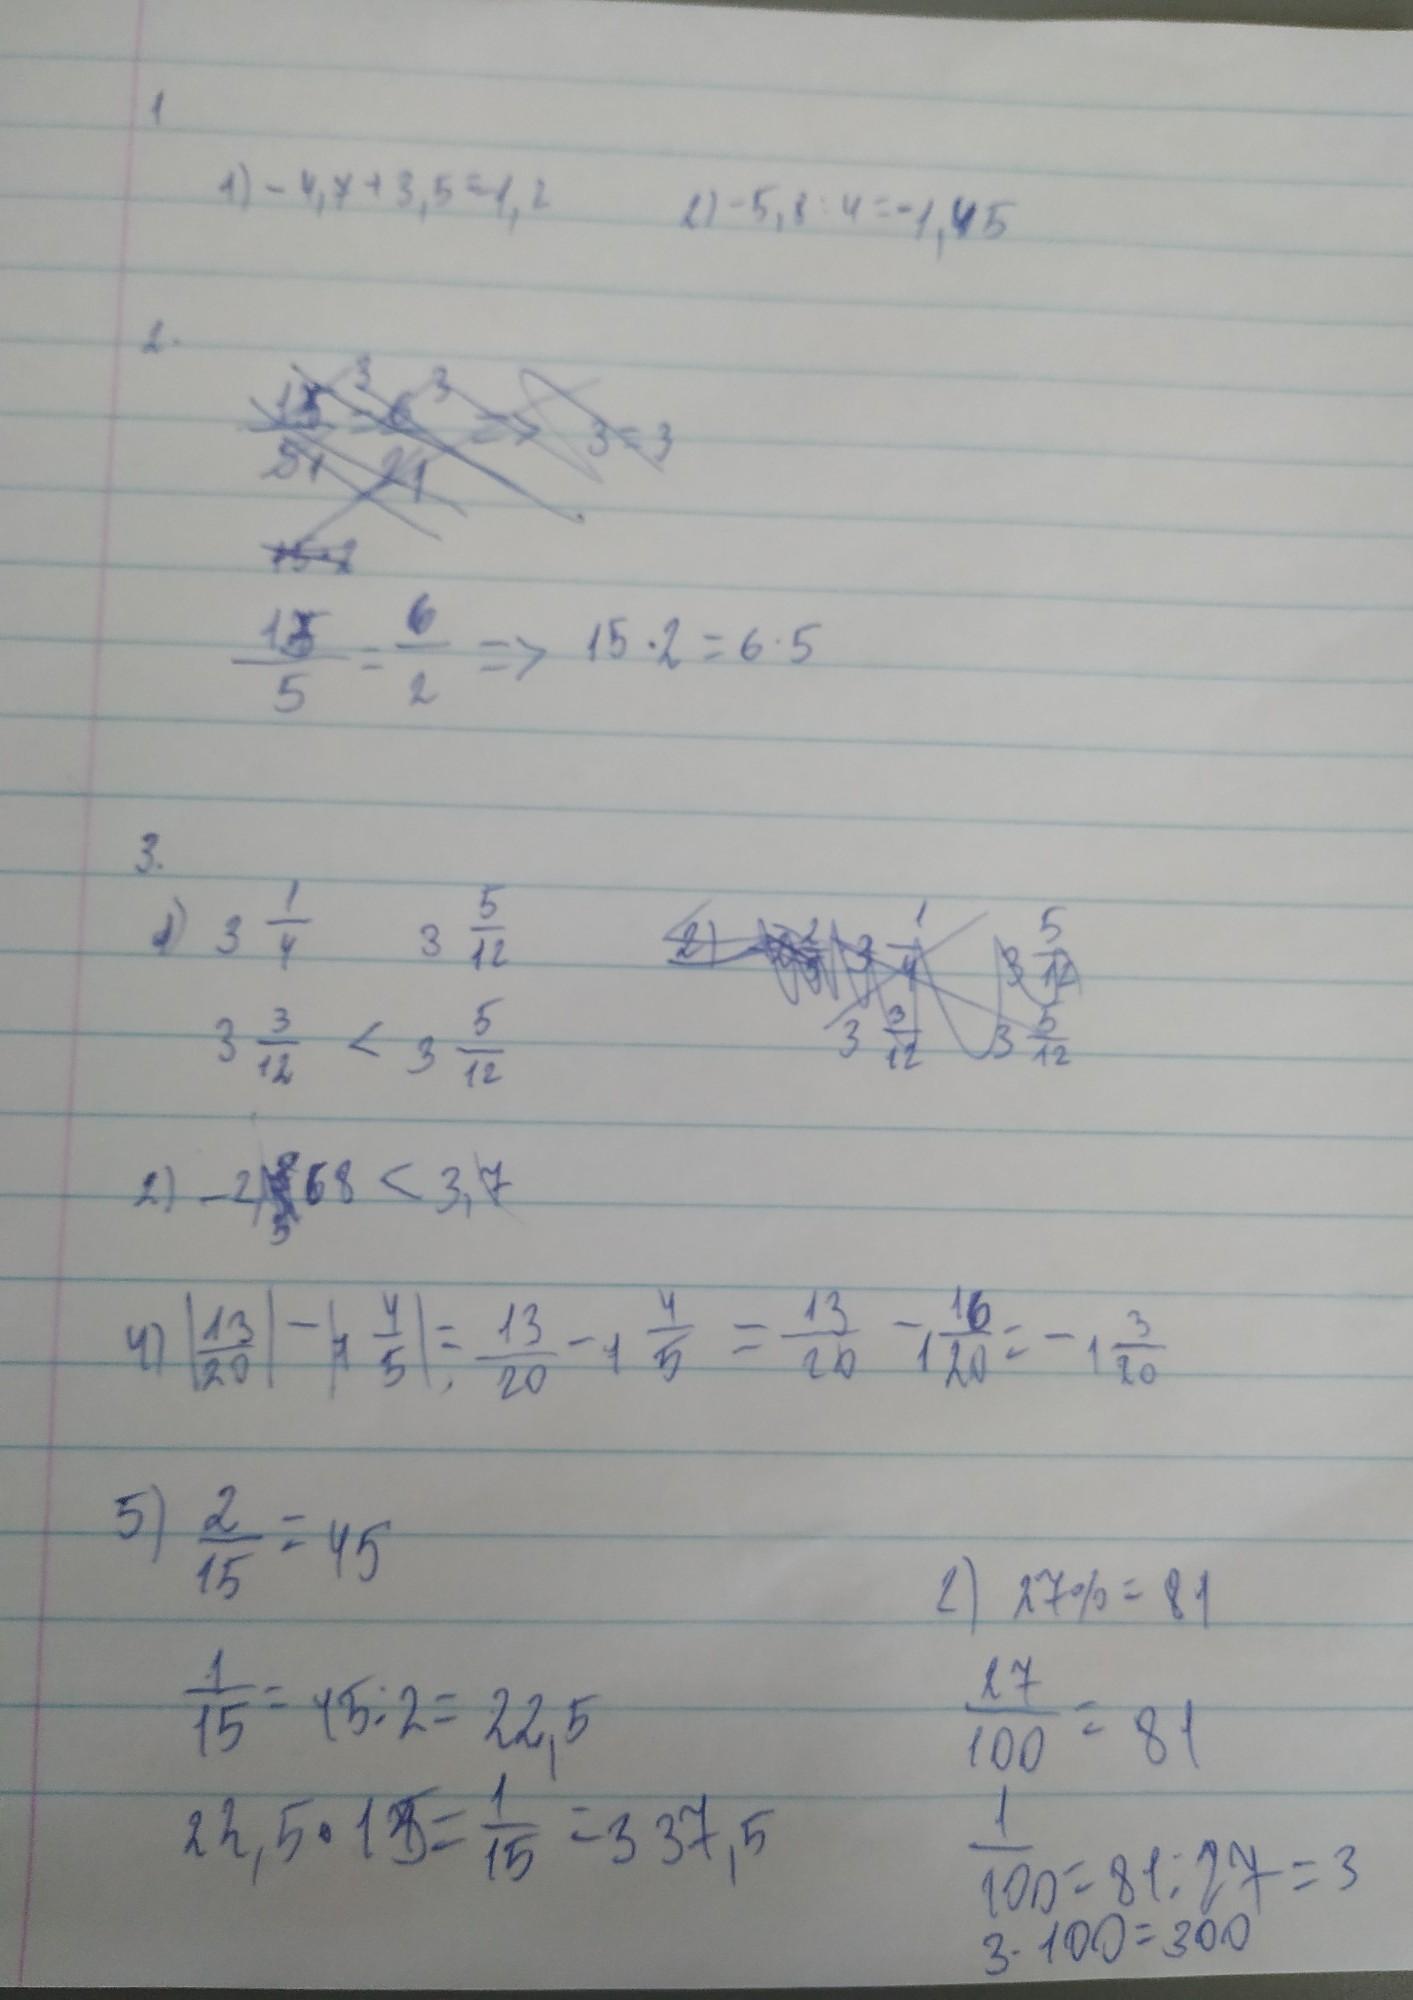 1
1) -4,7+3,5=1,2 2) -5,8:4=-1,45
2.
15/5 = 6/2 => 15·2=6·5
3.
1) 3 1/4 3 5/12
3 3/12 < 3 5/12
2) -2,568 < 3,7
4) |13/20| - |1 4/5| = 13/20 - 1 4/5 = 13/20 - 1 16/20 = -1 3/20
5) 2/15 = 45
1/15 = 45:2 = 22,5
22,5·15 = 1/15 = 337,5
2) 27% = 81
27/100 = 81
1/100 = 81:27 = 3
3·100=300